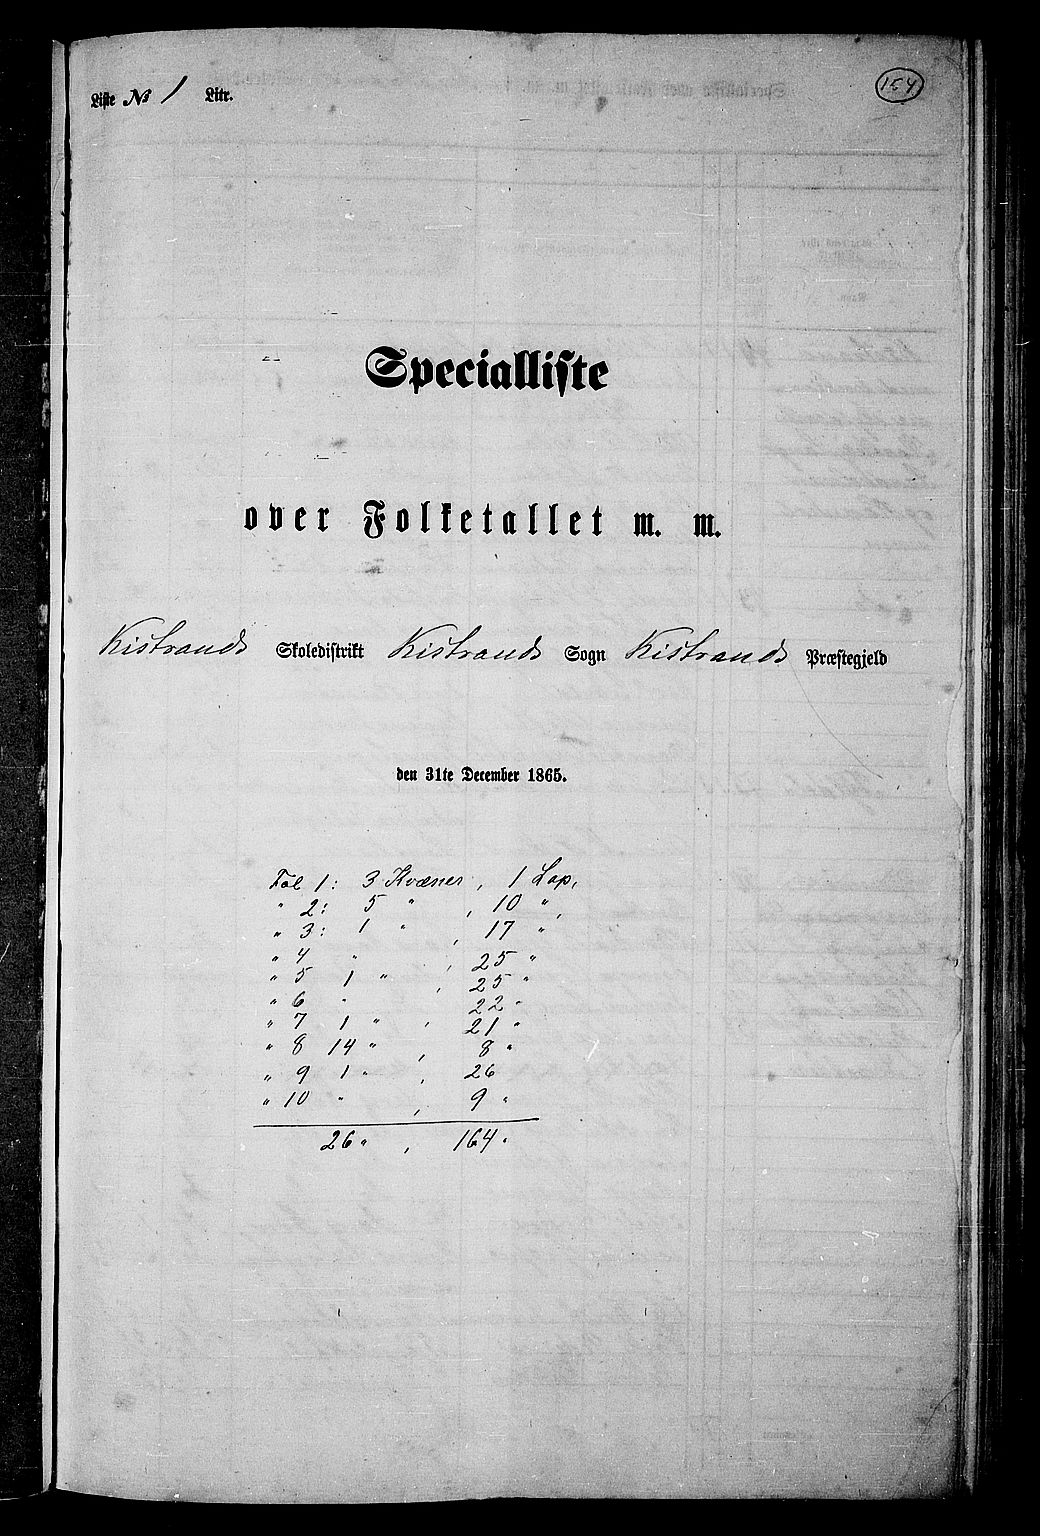 Liste No 1 Litr. 154
Specialliste
over Folketallet m. m.
Kistrands Skoledistrikt Kistrands Sogn Kistrands Præstegjeld
den 31te December 1865.
Fol 1: 3 Kvæner, 1 Lap,
" 2: 5 " , 10 " ,
" 3: 1 " , 17 "
" 4 " , 25 "
" 5 1 " , 25 "
" 6 " 22 "
" 7 1 " , 21 "
" 8 14 " , 8 "
" 9 1 " , 26
" 10 " , 9 "
26 " , 164 "